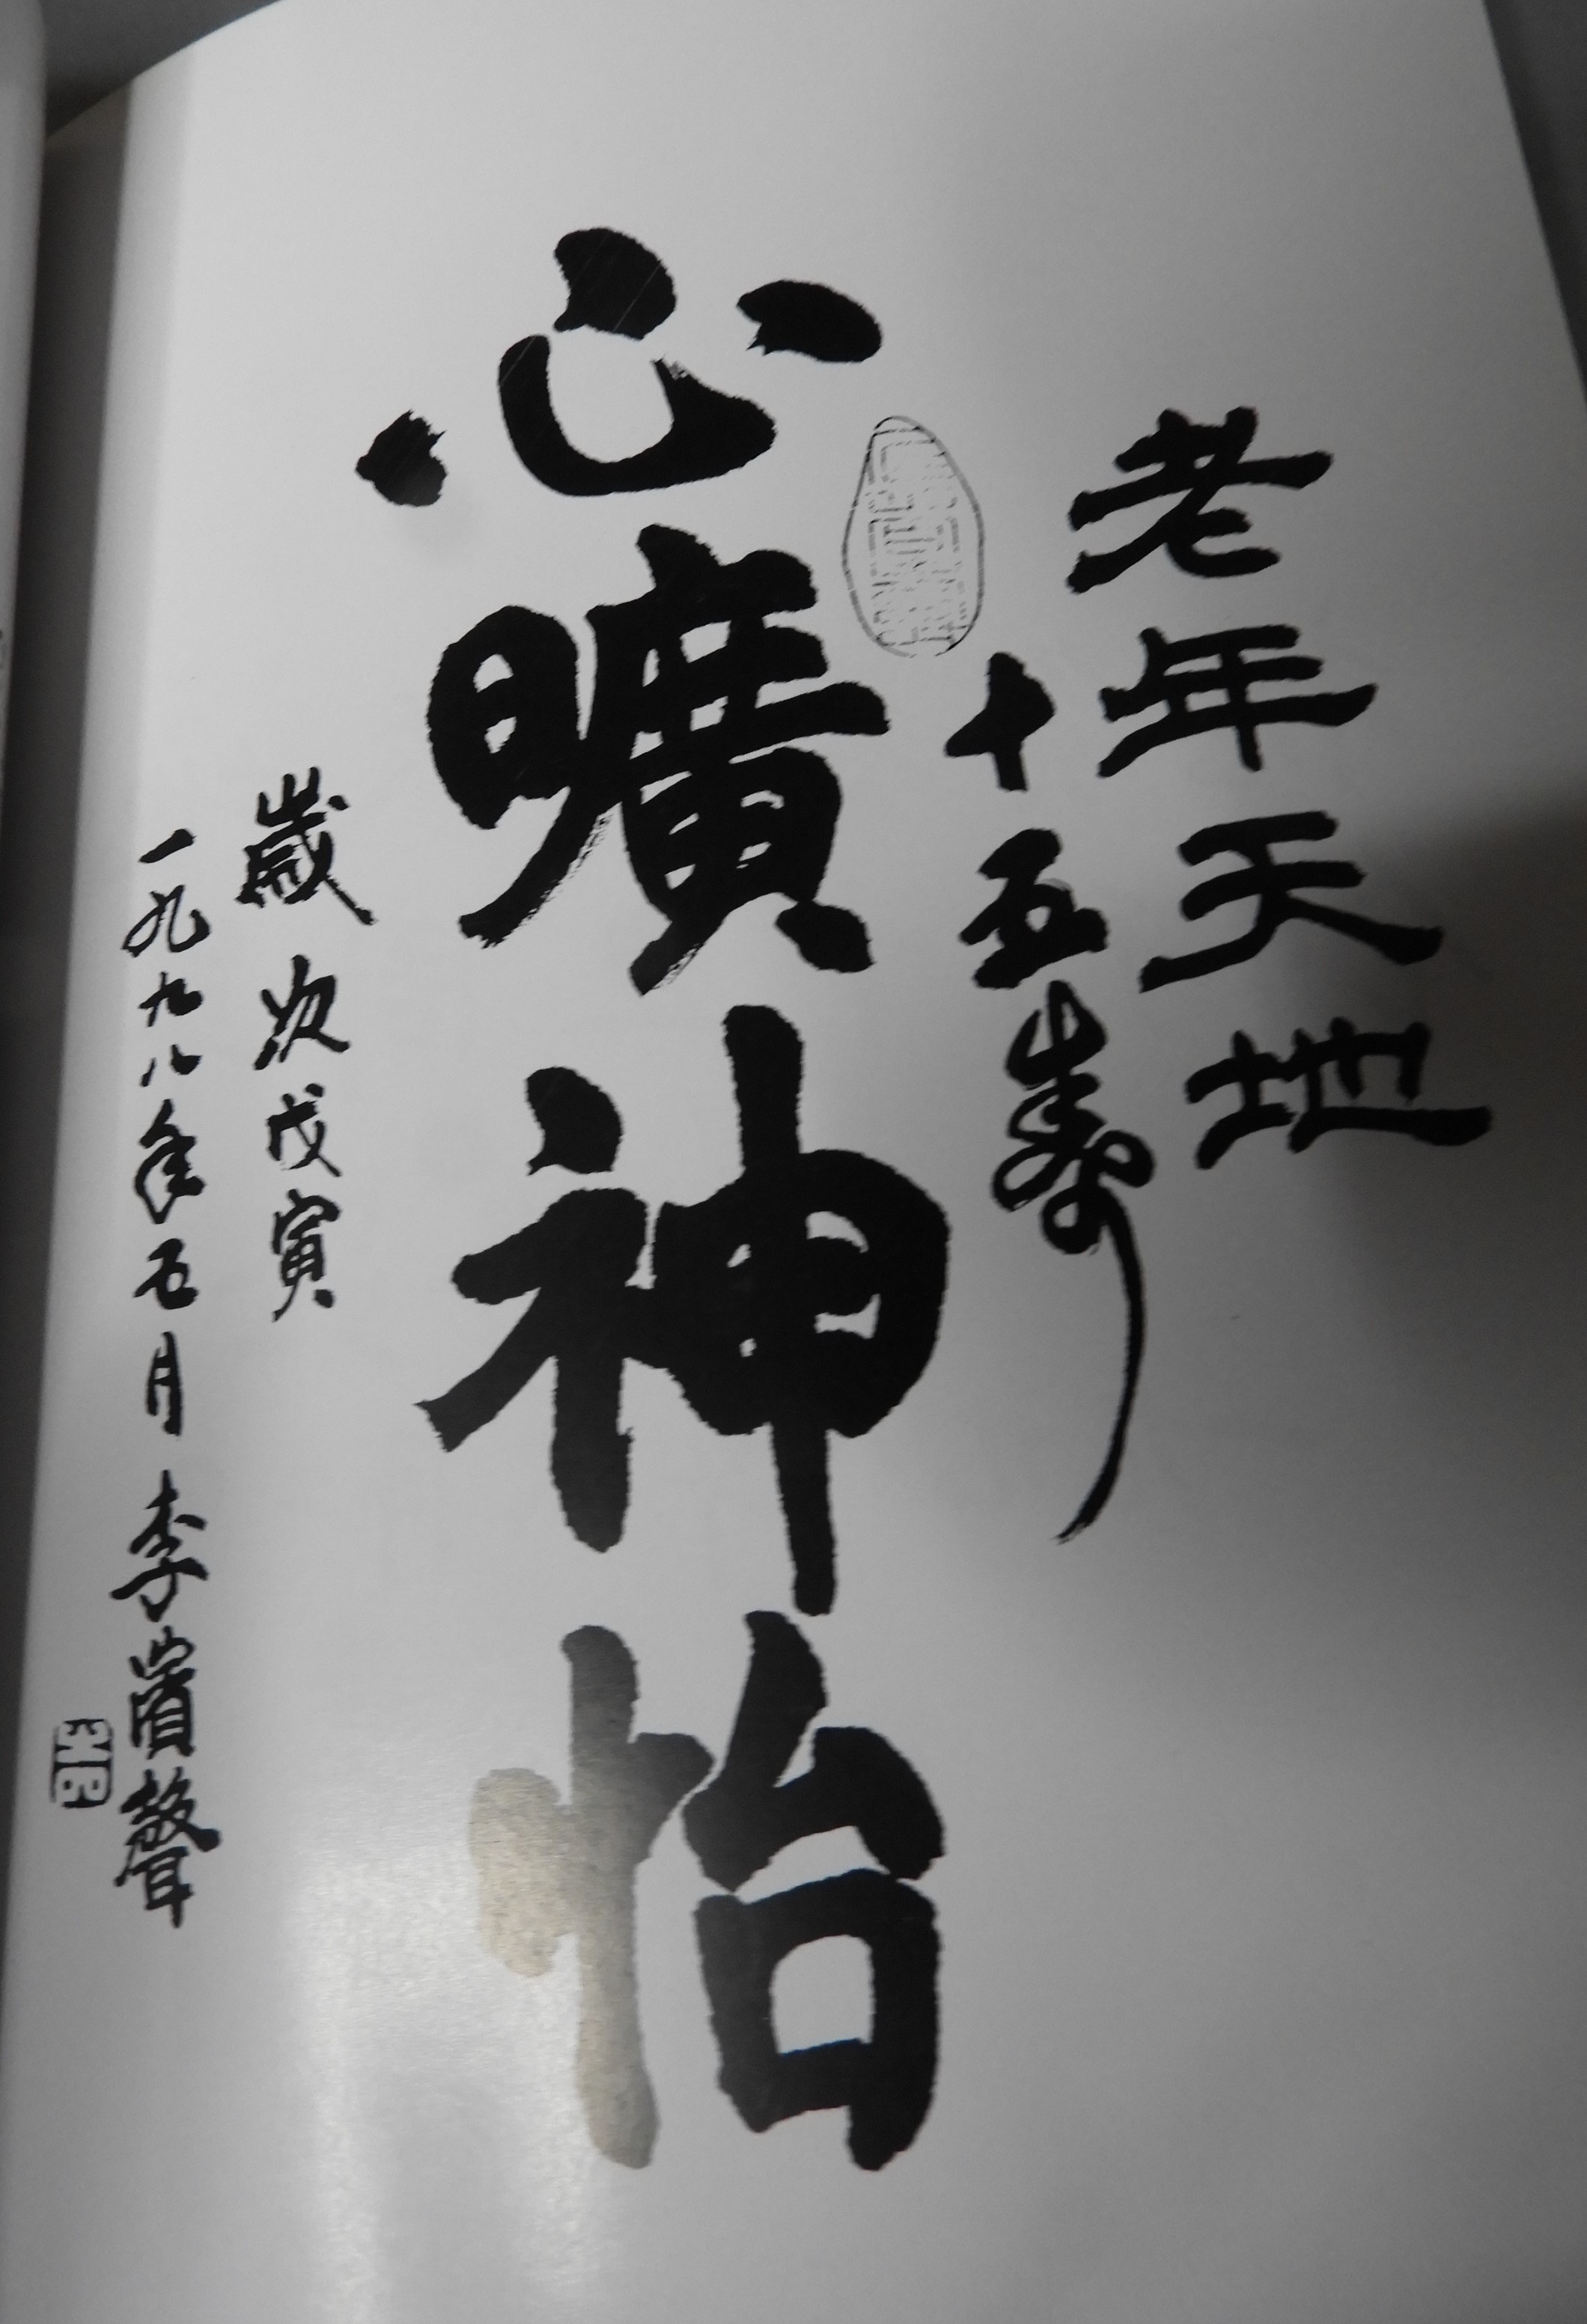 老年天地
十五壽
心曠神怡
歲次戊寅
一九九八年五月李賞聲